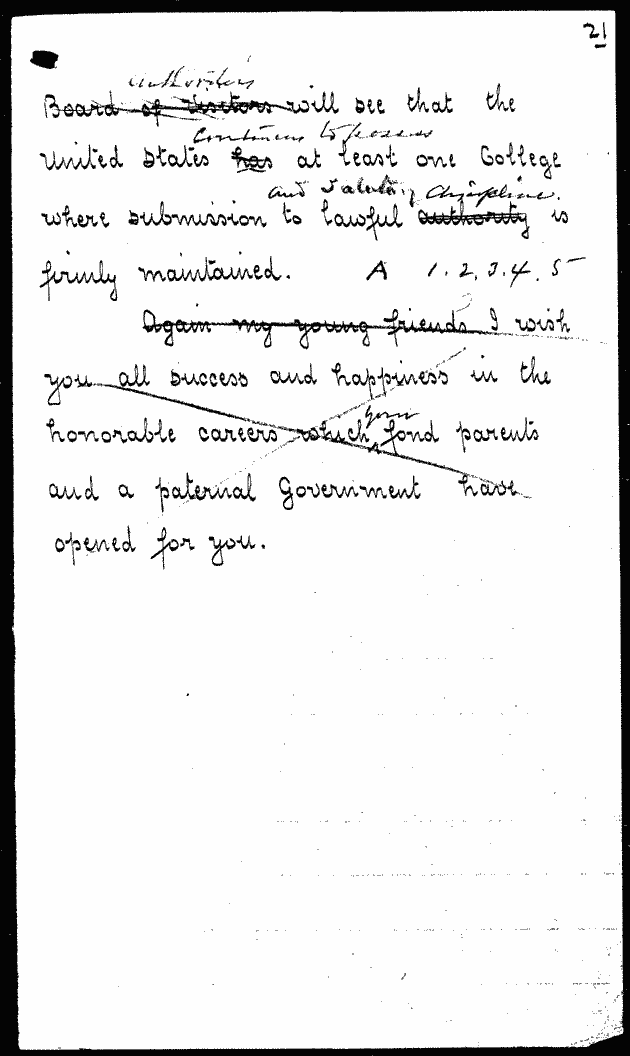 21
authorities
Board of Visitors will see that the
continues to possess
United States has at least one College
and salutary discipline.
where submission to lawful authority is
firmly maintained. A 1. 2. 3. 4. 5
Again my young friends I wish
you all success and happiness in the
honorable careers which your fond parents
and a paternal Government have
opened for you.